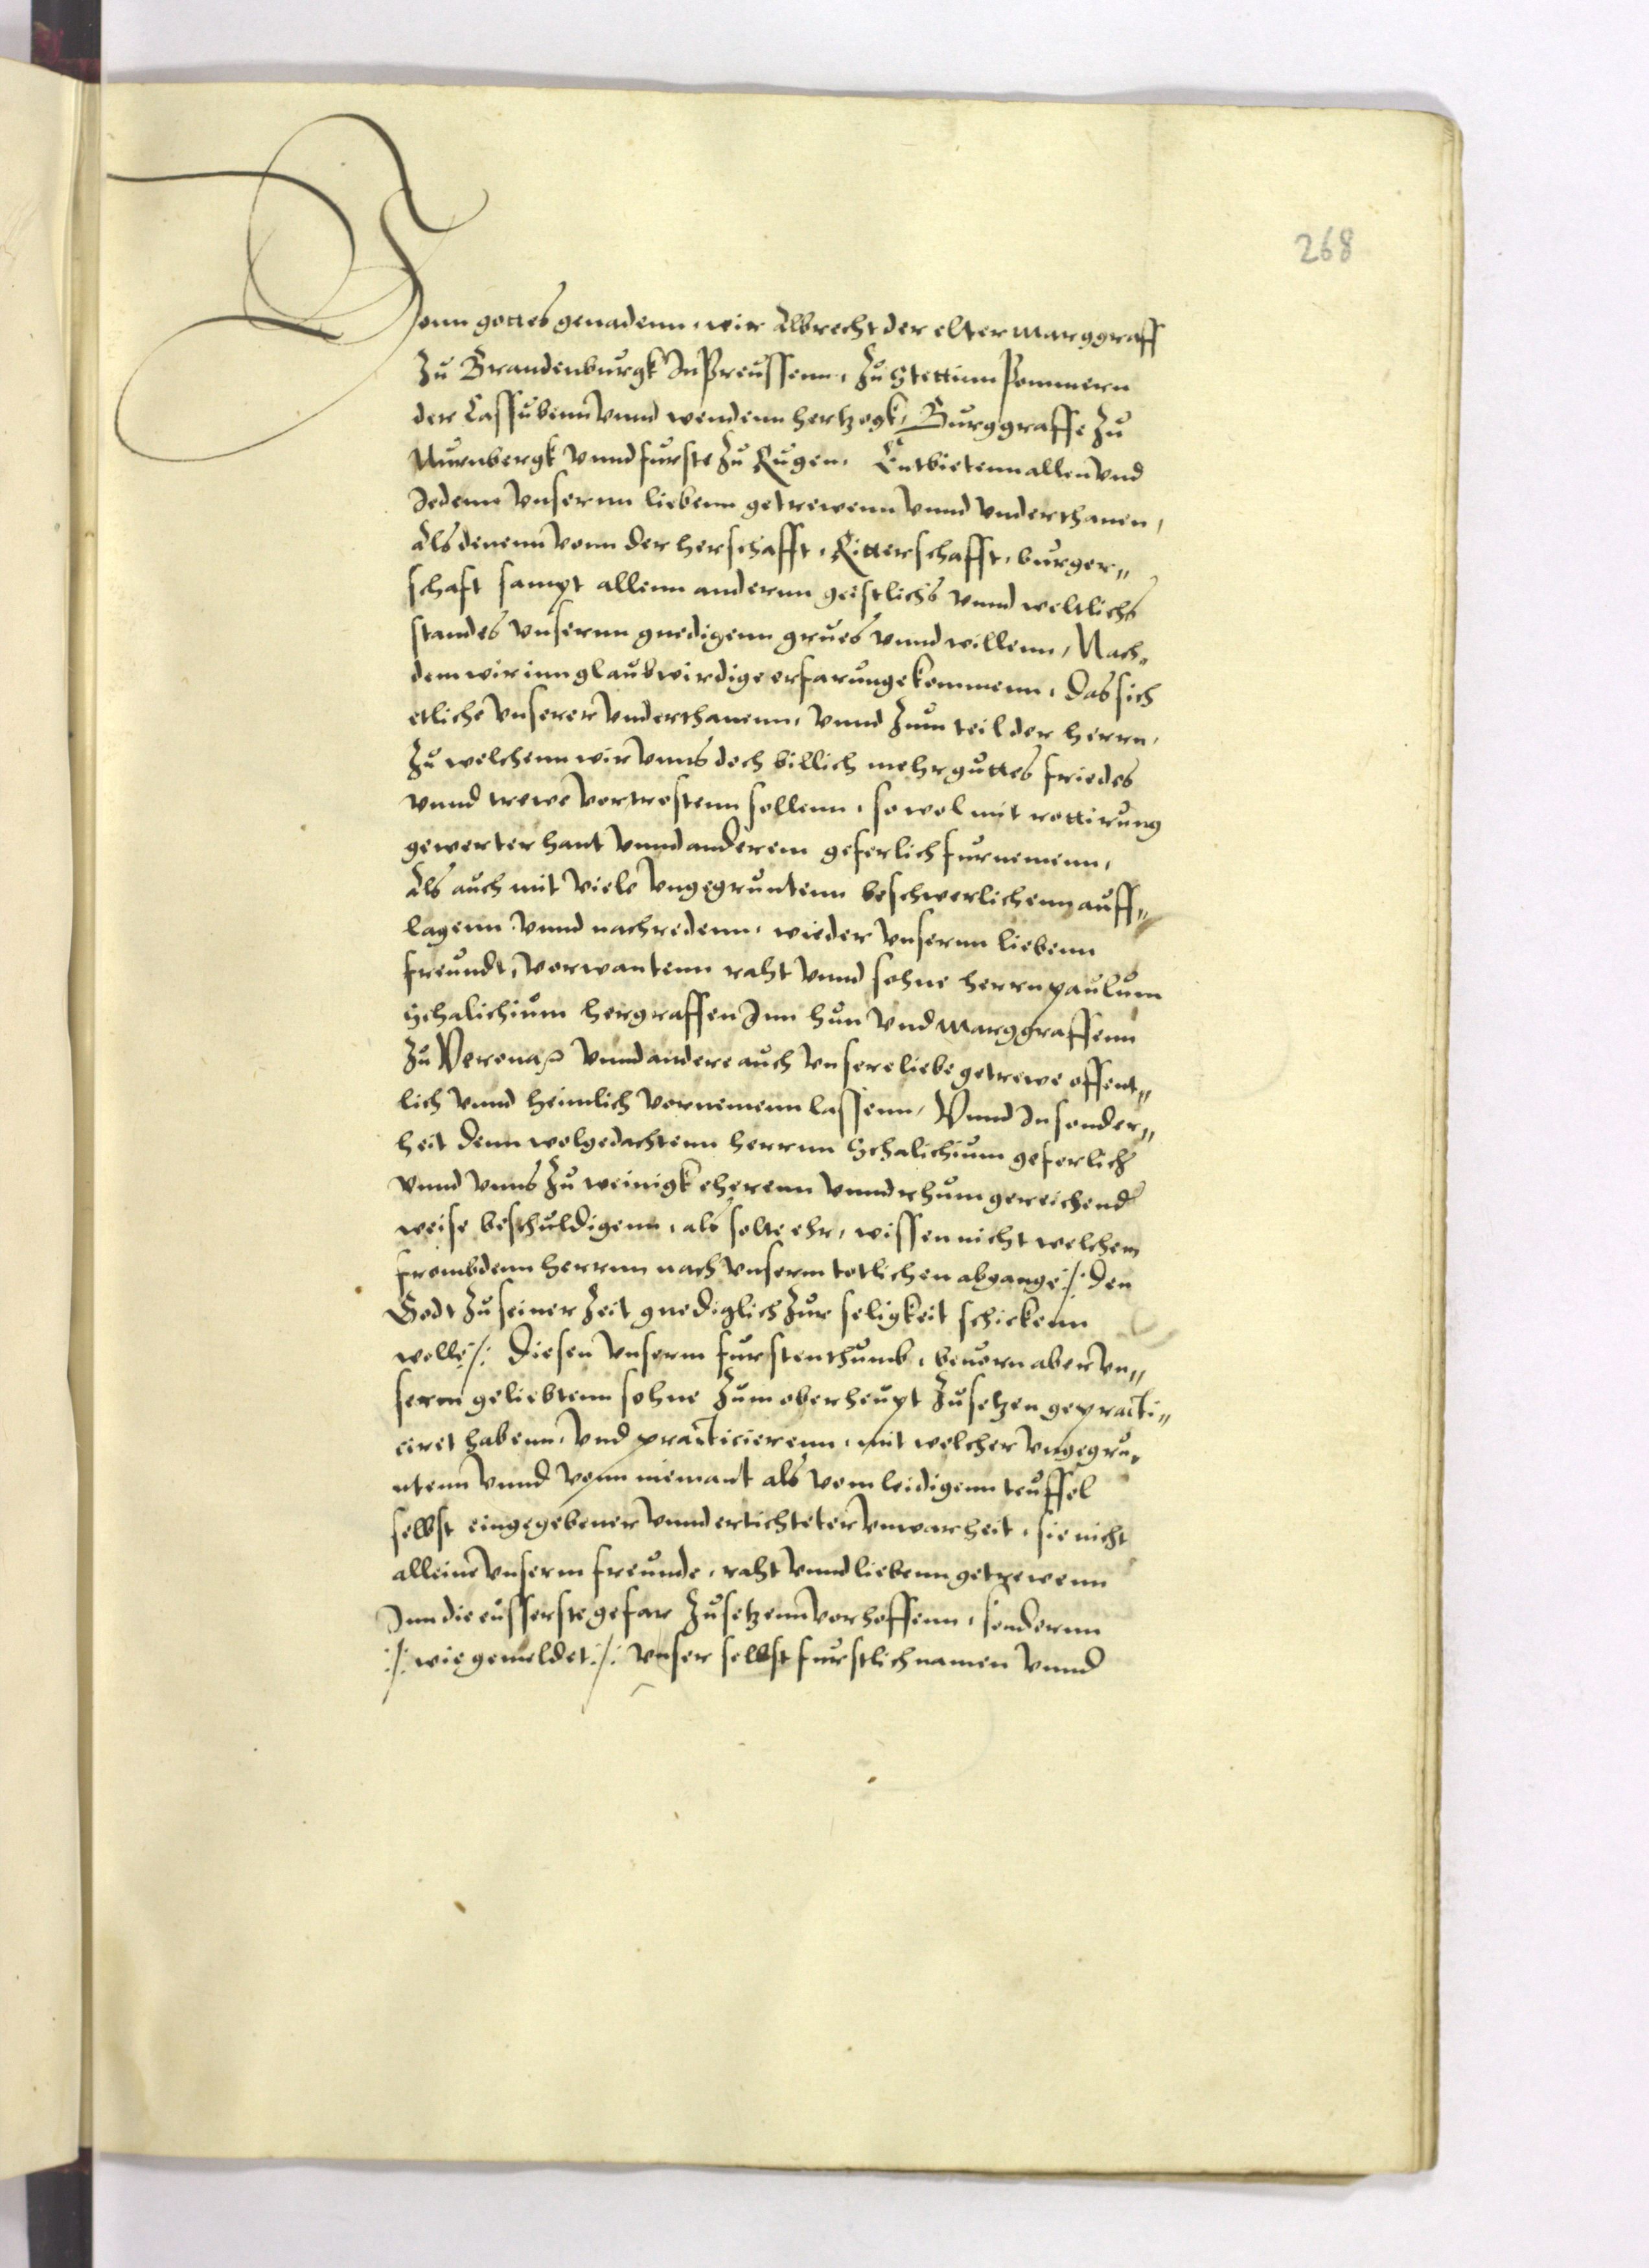 268
Vonn gottes genadenn, wir Albrecht der elter Marggraff
Zu Brandenburgk In Preussenn, Zu Stettinn Pommern
der Cassubenn vnnd wendenn hertzogk, Burggraffe Zu
Nurnbergk vnnd furste Zu Rugen, Entbietenn allen vnd
Jedenn vnsernn liebenn getrewenn vnnd vnderthanen,
Als denenn vonn der herschafft, Ritterschafft, burger„
schaft sampt allenn andernn geistlichs vnnd weltlichs
standes vnsernn gnedigenn grues vnnd willenn, Nach„
dem wir inn glaubwirdige erfarunge kommenn, das sich
etliche vnserer vnderthanenn, vnnd Zum teil der herrn,
Zu welchenn wir vnns doch billich mehr guttes friedes
vnnd trewe vortrostenn sollenn, so wol mit rottirung
gewerter hant vnnd anderem geferlich furnemenn,
Als auch mit viele vngegruntenn beschwerlichenn auff„
lagenn vnnd nachredenn, wieder vnsernn liebenn
freundt, vorwantenn raht vnnd sohne herrn paulum
Schalichium hergraffen Inn hun vnd Marggraffenn
Zu Verona vnnd andere auch vnsere liebe getrewe offent„
lich vnnd heimlich vornemenn lassenn, Vnnd In sonder„
heit denn wolgedachtenn herrnn Schalichium geferlich
vnnd vnns Zu weinigk eherenn vnnd rhum gereichend
weise beschuldigenn, als solte ehr, wissen nicht welchem
frembdenn herrnn nach vnserm totlichen abgange :/: den
Godt Zu seiner Zeit gnediglich Zur seligkeit schickenn
wolle :/: diesen vnserm furstenthumb, beuorn aber vn„
serm geliebtenn sohne Zum oberheupt Zu setzen gepracti„
ciret habenn, vnd practicierenn, mit welcher vngegru„
ntenn vnnd vonn niemant als vom leidigenn teuffel
selbst eingegebener vnnd ertichteter vnwarheit, sie nicht
alleine vnserm freunde, raht vnnd liebenn getrewenn
Inn die eusserste gefar Zu setzenn vorhoffenn, sondernn
:/: wie gemeldet :/: vnser selbst furstlich namen vnnd